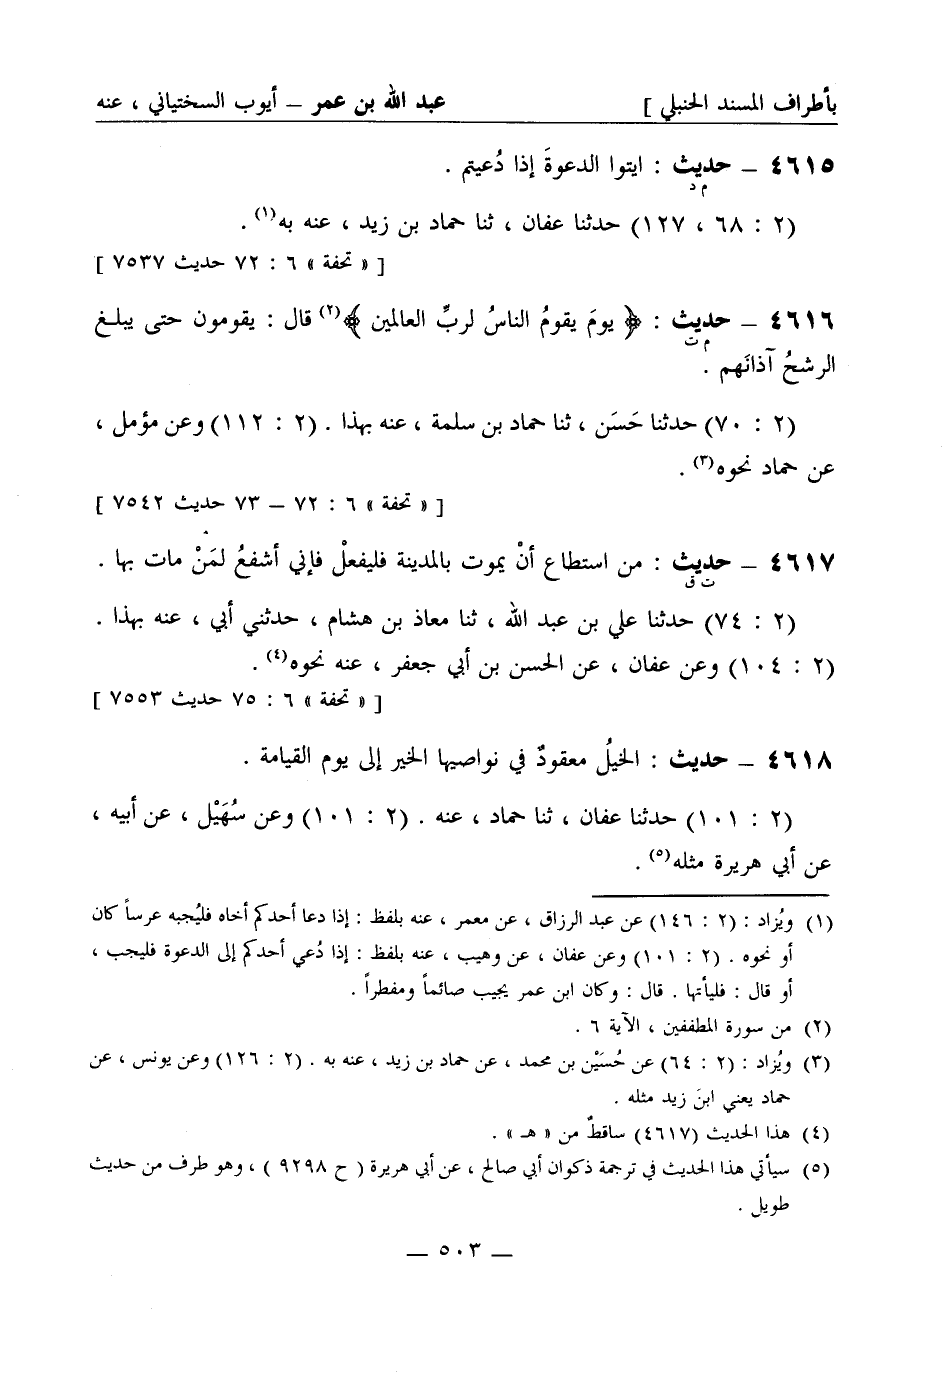 بأطراف المسند الحنبلي ] عبد الله بن عمر – أيوب السختياني ، عنه
٤٦١٥ – حديث : ايتوا الدعوةَ إذا دُعيتم .
م د
(٢ : ٦٨ ، ١٢٧) حدثنا عفان ، ثنا حماد بن زيد ، عنه به(١) .
[ « تحفة » ٦ : ٧٢ حديث ٧٥٣٧ ]
٤٦١٦ – حديث : ﴿ يومَ يقومُ الناسُ لربِّ العالمين ﴾(٢) قال : يقومون حتى يبلغ
م ت
الرشحُ آذانَهم .
(٢ : ٧٠) حدثنا حَسَن ، ثنا حماد بن سلمة ، عنه بهذا . (٢ : ١١٢) وعن مؤمل ،
عن حماد نحوه(٣) .
[ « تحفة » ٦ : ٧٢ – ٧٣ حديث ٧٥٤٢ ]
٤٦١٧ – حديث : من استطاع أنْ يموت بالمدينة فليفعلْ فإني أشفعُ لمَنْ مات بها .
ت ق
(٢ : ٧٤) حدثنا علي بن عبد الله ، ثنا معاذ بن هشام ، حدثني أبي ، عنه بهذا .
(٢ : ١٠٤) وعن عفان ، عن الحسن بن أبي جعفر ، عنه نحوه(٤) .
[ « تحفة » ٦ : ٧٥ حديث ٧٥٥٣ ]
٤٦١٨ – حديث : الخيلُ معقودٌ في نواصيها الخير إلى يوم القيامة .
(٢ : ١٠١) حدثنا عفان ، ثنا حماد ، عنه . (٢ : ١٠١) وعن سُهَيْل ، عن أبيه ،
عن أبي هريرة مثله(٥) .
(١) ويُزاد : (٢ : ١٤٦) عن عبد الرزاق ، عن معمر ، عنه بلفظ : إذا دعا أحدكم أخاه فليُجبه عرساً كان
أو نحوه . (٢ : ١٠١) وعن عفان ، عن وهيب ، عنه بلفظ : إذا دُعي أحدكم إلى الدعوة فليجب ،
أو قال : فليأتها . قال : وكان ابن عمر يجيب صائماً ومفطراً .
(٢) من سورة المطففين ، الآية ٦ .
(٣) ويُزاد : (٢ : ٦٤) عن حُسَيْن بن محمد ، عن حماد بن زيد ، عنه به . (٢ : ١٢٦) وعن يونس ، عن
حماد يعني ابنَ زيد مثله .
(٤) هذا الحديث (٤٦١٧) ساقطٌ من « هـ » .
(٥) سيأتي هذا الحديث في ترجمة ذكوان أبي صالح ، عن أبي هريرة ( ح ٩٢٩٨ ) ، وهو طرف من حديث
طويل .
– ٥٠٣ –